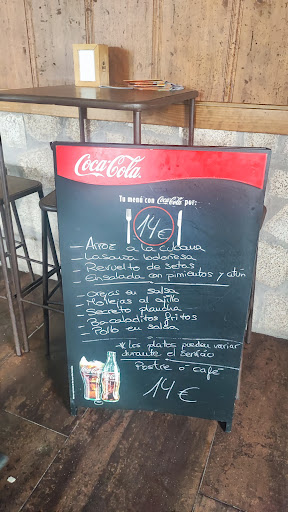 Coca-Cola
Tu menú con Coca-Cola por:
14€
- Arroz a la cubana
- Lasaña boloñesa
- Revuelto de setas
- Ensalada con pimientos y atún
- Orejas en salsa
- Mollejas al ajillo
- Secreto plancha
- Bacaladitos fritos
- Pollo en salsa
* Los platos pueden variar
durante el servicio
Postre o café
14€